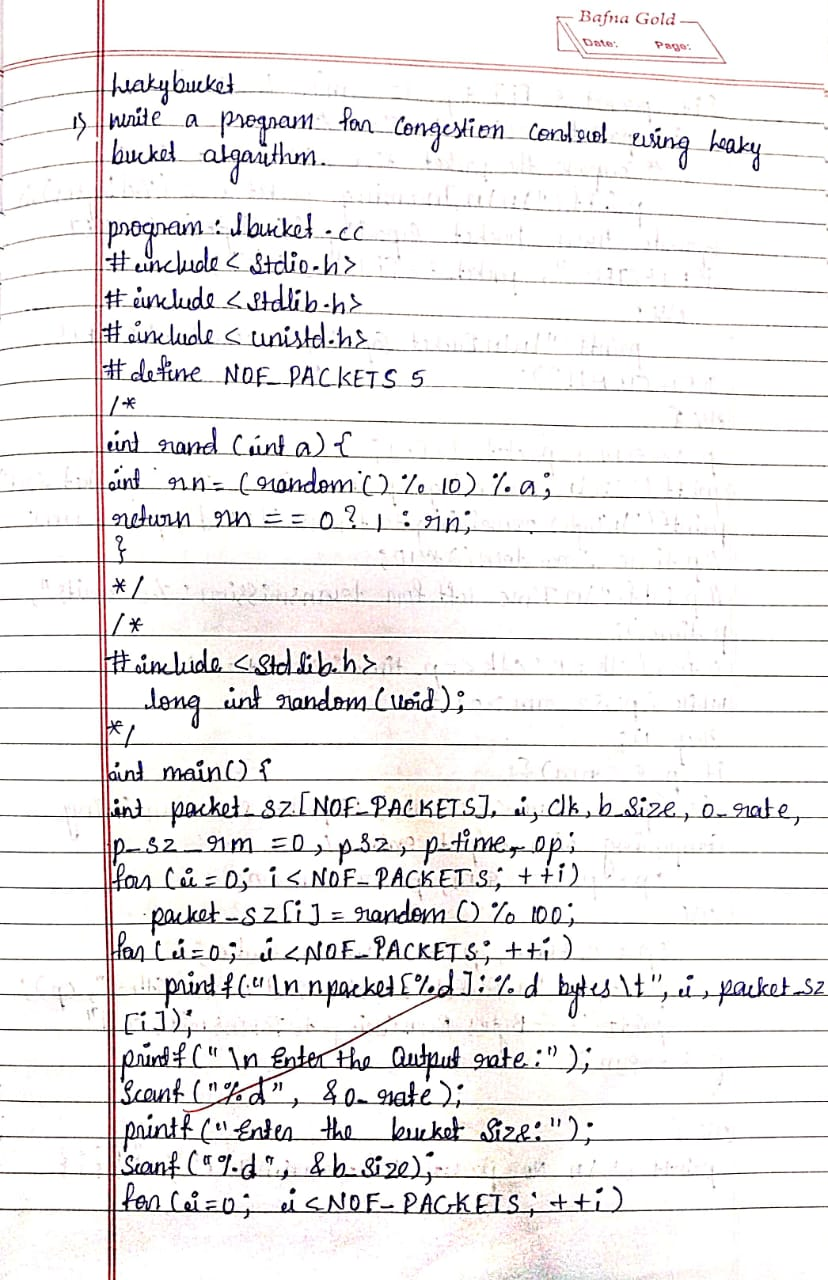 Bafna Gold
Date: Page:
Leakybucket
1) write a program for Congestion Control using leaky
bucket algorithm.
program : lbucket.cc
#include < stdio.h>
#include <stdlib.h>
#include < unistd.h>
#define NOF_PACKETS 5
/*
int rand (int a) {
int rn = (random() % 10) % a;
return rn == 0 ? 1 : rn;
}
*/
/*
#include <stdlib.h>
long int random (void);
*/
int main() {
int packet_sz[NOF_PACKETS], i, clk, b_size, o_rate,
p_sz_rm =0, psz, p_time, op;
for (i = 0; i < NOF_PACKETS; ++i)
packet_sz[i] = random () % 100;
for (i=0; i <NOF_PACKETS; ++i)
printf("\n npacket[%d]:%d bytes\t", i, packet_sz
[i]);
printf(" \n Enter the Output rate:");
Scanf ("%d", &o_rate);
printf ("Enter the bucket Size:");
Scanf ("%d", &b_size);
for (i=0; i <NOF_PACKETS; ++i)